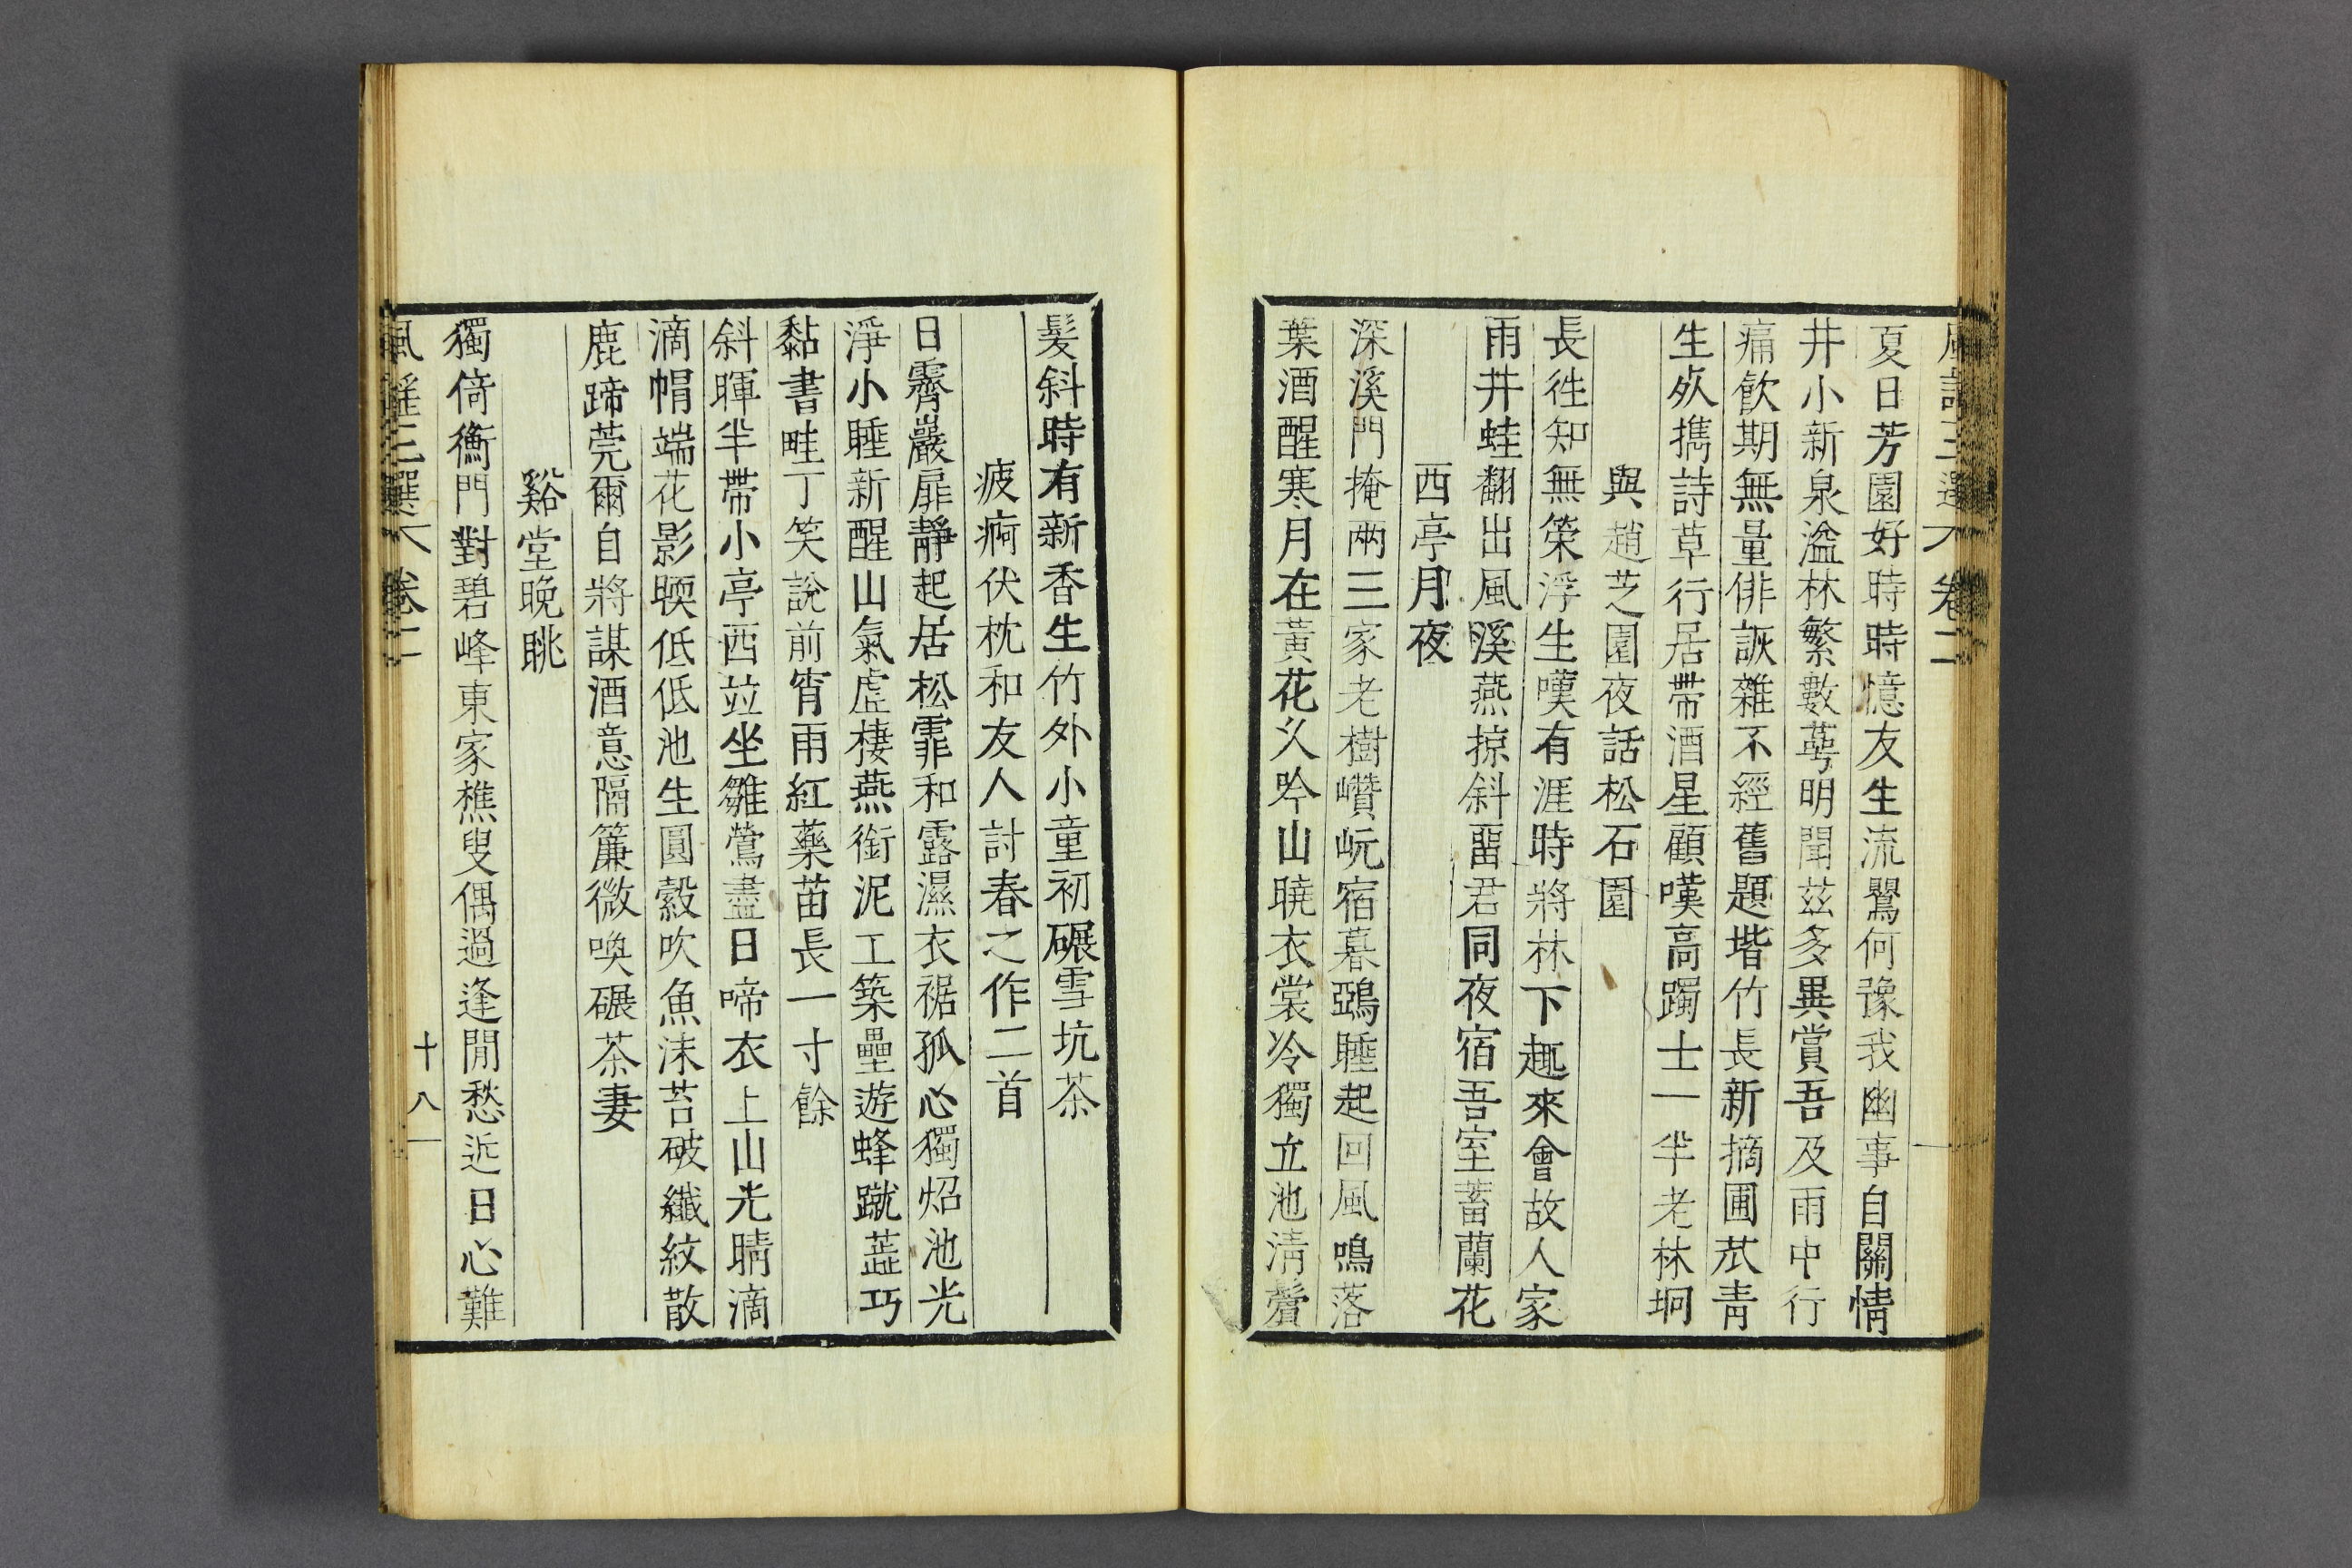 夏日芳園好時時憶友生流鶯何豫我幽事自關情
井小新泉溢林繁數萼明聞茲多異賞吾及雨中行
痛飲期無量俳詼雜不經舊題堦竹長新摘圃苽靑
生猒携詩草行居帶酒星顧嘆高躅士一半老林坰
與趙芝園夜話松石園
長徃知無榮浮生嘆有涯時將林下趣來會故人家
雨井蛙翻出風溪燕掠斜畱君同夜宿吾室蓄蘭花
西亭月夜
深溪門掩兩三家老樹巑岏宿暮鵶睡起回風鳴落
葉酒醒寒月在黃花久吟山曉衣裳冷獨立池淸鬢
髮斜時有新香生竹外小童初碾雪坑茶
疲痾伏枕和友人討春之作二首
日霽巖扉靜起居松霏和露濕衣裾孤心獨炤池光
淨小睡新醒山氣虛棲燕銜泥工築壘遊蜂蹴蘂巧
黏書畦丁笑說前宵雨紅藥苗長一寸餘
斜暉半帶小亭西竝坐雛鶯盡日啼衣上山光晴滴
滴帽端花影㬉低低池生圓縠吹魚沫苔破纖紋散
鹿蹄莞爾自將謀酒意隔簾微喚碾茶妻
谿堂晚眺
獨倚衡門對碧峰東家樵叟偶過逢閒愁近日心難
風謠三選 卷二 十八